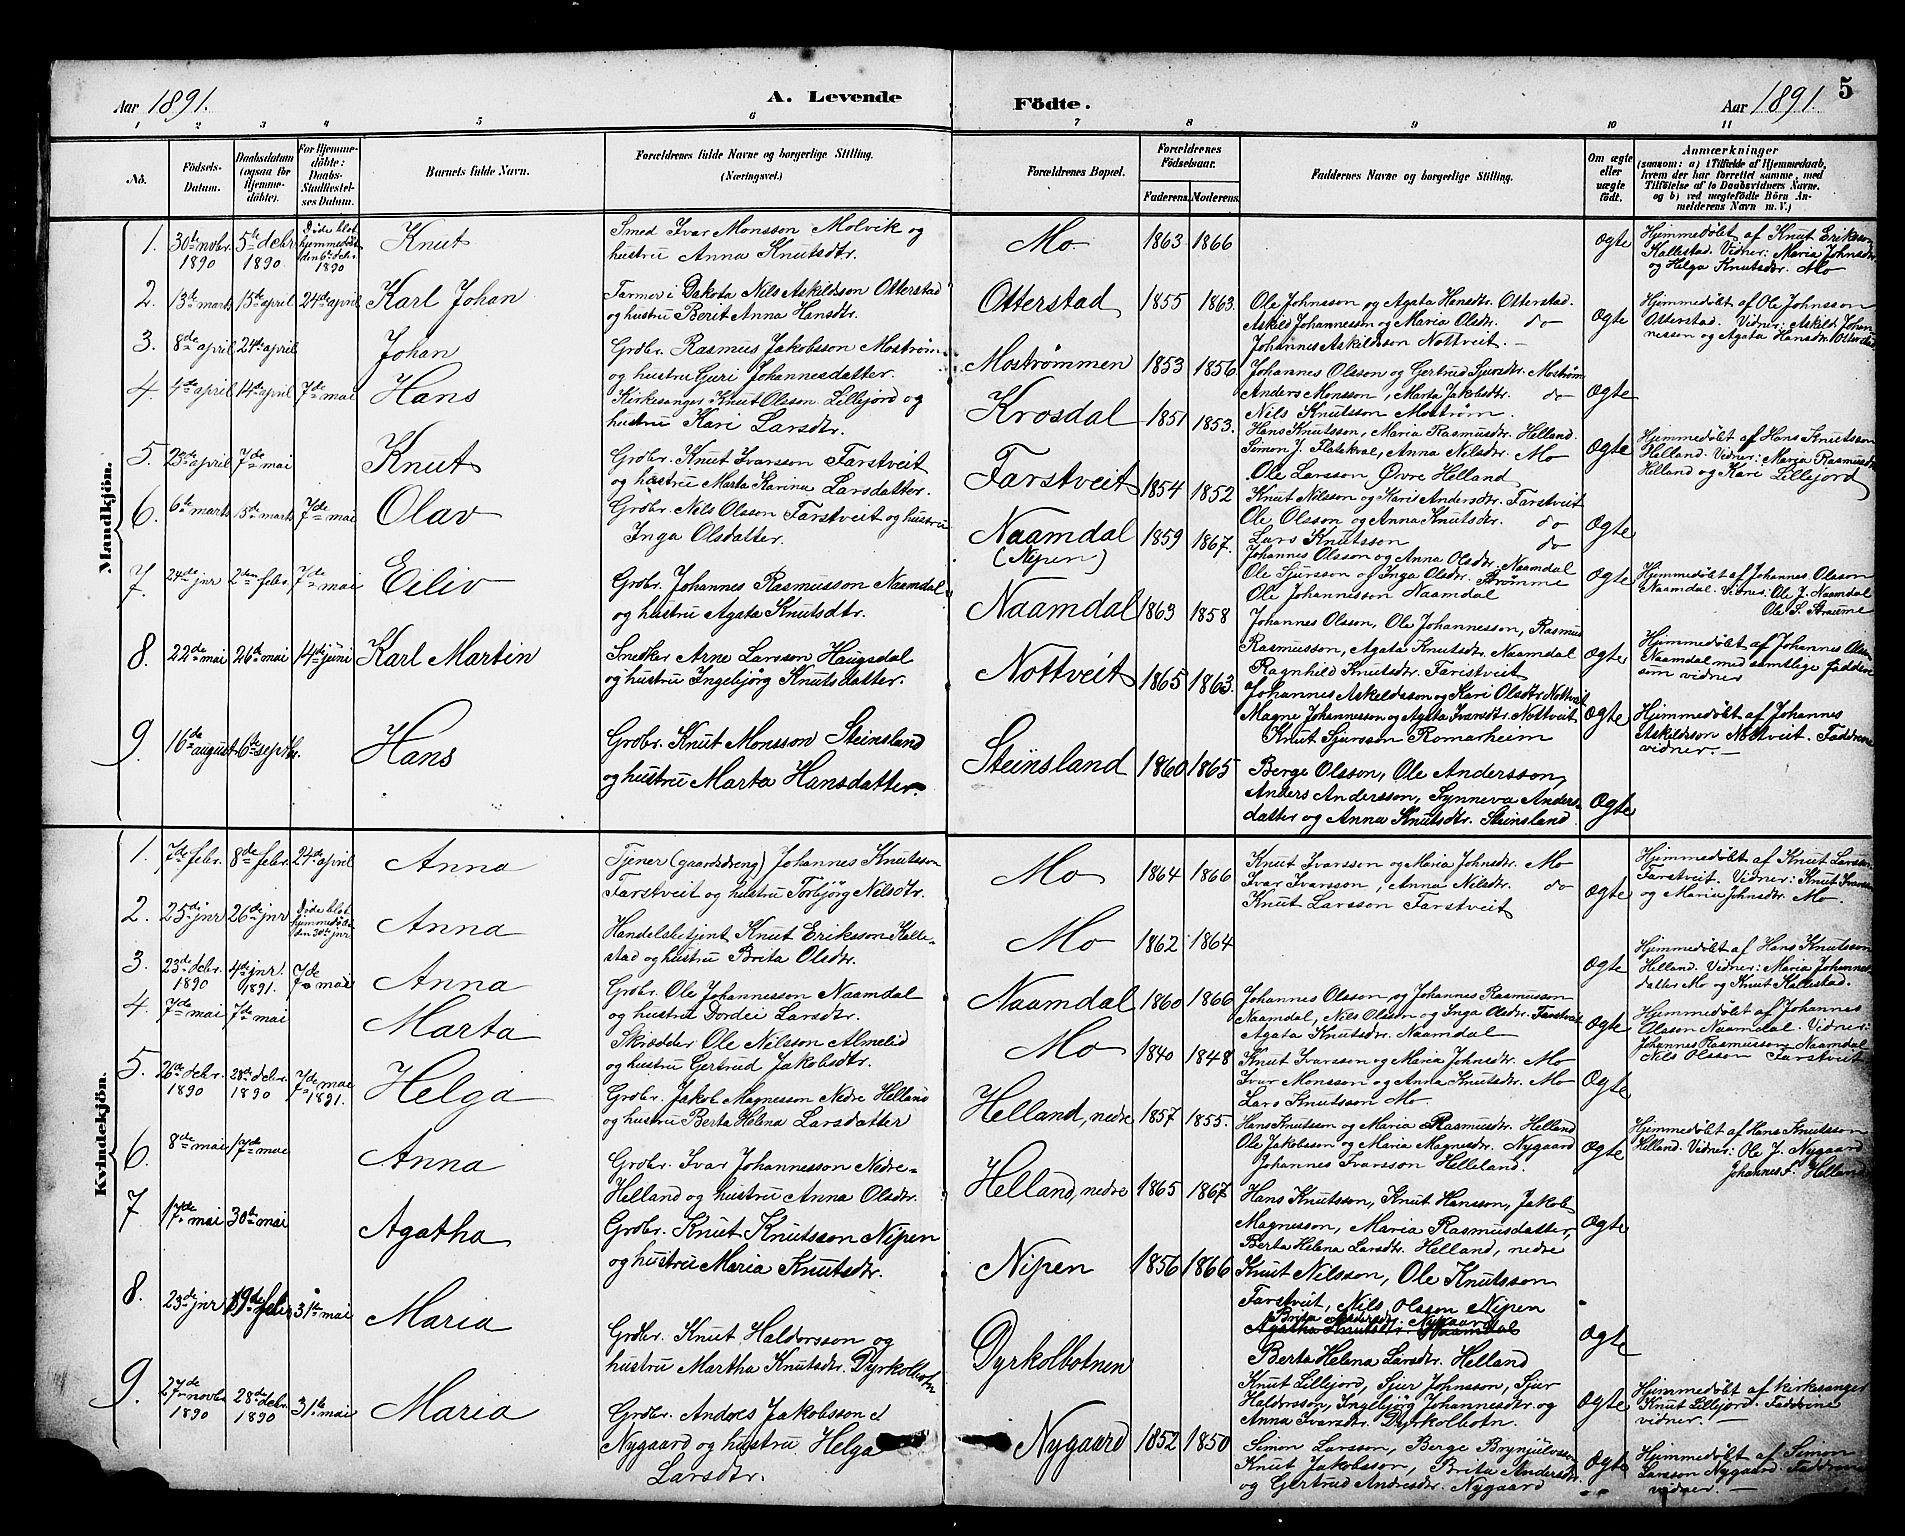 Aar 1891.
A. Levende
Födte.
Aar 1891.
5
1 2 3 4 5 6 7 8 9 10 11
No.
Födsels-Datum.
Daabsdatum (ogsaa for Hjemmedöbte).
For Hjemmedöbte: Daabs-Stadfæstelses Datum.
Barnets fulde Navn.
Forældrenes fulde Navne og borgerlige Stilling.
(Næringsvei.)
Forældrenes Bopæl.
Forældrenes Födselsaar.
Faderens. Moderens.
Faddernes Navne og borgerlige Stilling.
Om ægte eller uægte födt.
Anmærkninger
(saasom: a) i Tilfælde af Hjemmedaab, hvem der har forrettet samme, med Tilföielse af to Daabsvidners Navne, og b) ved uægtefödte Börn Anmelderens Navn m. V.)
Mandkjön.
1. 30te novbr. 1890 5te decbr. 1890 Döde blot hjemmedöbt den 6te decbr. 1890 Knut
Smed Ivar Monsson Molvik og
hustru Anna Knutsdtr.
Mo 1863 1866 Ægte
Hjemmedøbt af Knut Eriksson
Kallestad. Vidner: Maria Johnsdtr
og Helga Knutsdtr. Mo
2. 13de marts 15de april 24de april Karl Johan
Farmer i Dakota Nils Askildsson Otterstad
og hustru Berit Anna Hansdtr.
Otterstad 1855 1863.
Ole Johnsson og Agata Hansdtr. Otterstad.
Askild Johannesson og Maria Olsdtr. do
Johannes Askildsson Nottveit. —
Ægte
Hjemmedøbt af Ole Johnsson
Otterstad. Vidner: Askild Johannessen og Agata Hansdtr. Otterstad
3. 8de april 24de april Johan
Grdbr. Rasmus Jakobsson Mostrøm
og hustru Guri Johannesdatter.
Mostrømmen 1853 1856
Johannes Olsson og Gertrud Sjursdtr. Mostrøm
Anders Monsson, Marta Jakobsdtr. do
Nils Knutsson Mostrøm.
Ægte
4. 4de april 14de april 7de mai Hans
Kirkesanger Knut Olsson Lillejord og
hustru Kari Larsdtr.
Krosdal 1851 1853.
Hans Knutsson, Maria Rasmusdtr. Helland.
Simon J. Flatekval, Anna Nilsdtr. Mo
Ole Larsson Øvre Helland
Ægte
Hjemmedøbt af Hans Knutsson
Helland. Vidner: Maria Rasmusdtr
Helland og Kari Lillejord
5. 23de april 7de mai Knut
Grdbr. Knut Ivarsson Farstveit
og hustru Marta Karina Larsdatter.
Farstveit 1854 1852
Knut Nilsson og Kari Andersdtr. Farstveit
Ole Olsson og Anna Knutsdtr. do
Lars Knutsson do
Ægte
6. 6te marts 15de marts 7de mai Olav
Grdbr. Nils Olsson Farstveit og hustru
Inga Olsdatter.
Naamdal
(Nipen)
1859 1867.
Johannes Olsson og Anna Olsdtr. Naamdal
Ole Sjursson og Inga Olsdtr. Strømme
Ole Johannesson Naamdal
Ægte
Hjemmedøbt af Johannes Olsson
Naamdal. Vidner: Ole J. Naamdal
Ole S. Straume
7. 24de jnr 2den febr. 7de mai Eiliv
Grdbr. Johannes Rasmusson Naamdal
og hustru Agata Knutsdtr.
Naamdal 1863 1858
Johannes Olsson, Ole Johannesson, Rasmus
Rasmusson, Agata Knutsdtr. Naamdal
Ragnhild Knutsdtr. Faristveit
Ægte
Hjemmedøbt af Johannes Olsson
Naamdal med samtlige faddere
som vidner
8. 22de mai 26de mai 14de juni Karl Martin
Snedker Arne Larsson Haugsdal
og hustru Ingebjörg Knutsdatter.
Nottveit 1865 1863.
Johannes Askildsson og Kari Olsdtr. Nottveit
Magne Johannesson og Agata Ivarsdtr. Nottveit
Knut Sjursson Romarheim
Ægte
Hjemmedøbt af Johannes
Askildsson Nottveit. Faddrene
vidner. —
9. 16de august 6te septbr. Hans
Grdbr. Knut Monsson Steinsland
og hustru Marta Hansdatter.
Steinsland 1860 1865
Berge Olsson, Ole Andersson,
Anders Andersson, Synneva Andersdatter og Anna Knutsdtr. Steinsland
Ægte
Kvindekjön.
1. 7de febr. 8de febr. 24de april Anna
Tjener (gaardsdreng) Johannes Knutsson
Farstveit og hustru Torbjörg Nilsdtr.
Mo 1864 1866
Knut Ivarsson og Maria Johnsdtr. Mo
Ivar Ivarsson, Anna Nilsdtr. do
Knut Larsson Farstveit
Ægte
Hjemmedøbt af Knut Larsson
Farstveit. Vidner: Knut Ivarsson
og Maria Johnsdtr. Mo.
2. 25de jnr 26de jnr Döde blot hjemmedöbt den 30te jnr Anna
Handelsbetjent Knut Eriksson Kallestad og hustru Brita Olsdtr.
Mo 1862 1864 Ægte
Hjemmedøbt af Hans Knutsson
Helland. Vidner: Maria Johannesdatter Mo og Knut Kallestad.
3. 23de decbr. 1890 4de jnr. 1891. 7de mai Anna
Grdbr. Ole Johannesson Naamdal
og hustru Dordei Larsdtr.
Naamdal 1860 1866
Johannes Olsson, og Johannes Rasmusson
Naamdal, Nils Olsson og Inga Olsdtr. Farstveit
Agata Knutsdtr. Naamdal
Ægte
Hjemmedøbt af Johannes
Olsson Naamdal. Vidner:
Johannes Rasmusson Naamdal
Nils Olsson Farstveit
4. 7de mai 7de mai Marta
Skrædder Ole Nilsson Almelid
og hustru Gertrud Jakobsdtr.
Mo 1840 1848
Knut Ivarsson og Maria Johnsdtr. Mo
Ivar Monsson og Anna Knutsdtr. Mo
Lars Knutsson Mo
Ægte
5. 26de decbr. 1890 28de decbr. 1890 7de mai 1891. Helga
Grdbr. Jakob Magnesson Nedre Helland
og hustru Berta Helena Larsdatter
Helland, nedre 1857 1855.
Hans Knutsson og Maria Rasmusdtr. Helland
Ole Jakobsson og Maria Magnesdtr. Nygaard
Johannes Ivarsson Helleland.
Ægte
Hjemmedøbt af Hans Knutsson
Helland. Vidner: Ole J. Nygaard
Johannes I. Helland
6. 8de mai 17de mai Anna
Grdbr. Ivar Johannesson Nedre-
Helland og hustru Anna Olsdtr.
Helland, nedre 1865 1867
Hans Knutsson, Knut Hansson, Jakob
Magnesson, Maria Rasmusdatter,
Berta Helena Larsdtr. Helland, nedre
Ægte
7 17de mai 30te mai Agatha
Grdbr. Knut Knutsson Nipen
og hustru Maria Knutsdtr.
Nipen 1856 1866
Knut Nilsson, Ole Knutsson
Farstveit, Nils Olsson Nipen
Brita Andersdtr. Nygaard
Agatha Knutsdtr. Naamdal
Berta Helena Larsdtr. Helland
Ægte
8. 23de jnr 19de febr. 31te mai Maria
Grdbr. Knut Haldorsson og
hustru Martha Knutsdtr. Dyrkolbotn
Dyrkolbotnen
Knut Lillejord, Sjur Johnsson, Sjur
Haldorsson, Ingebjörg Johannesdtr. og
Anna Ivarsdtr. Dyrkolbotn.
Ægte
Hjemmedøbt af kirkesanger
Knut Lillejord. Faddrene
vidner. —
9. 27de novbr. 1890 28de decbr. 1890 31te mai Maria
Grdbr. Andres Jakobsson
Nygaard og hustru Helga
Larsdtr.
Nygaard 1852 1850
Simon Larsson, Berge Brynjulvsson
Knut Jakobsson, Brita Andersdtr.
og Gertrud Andresdtr. Nygaard
Ægte
Hjemmedøbt af Simon
Larsson Nygaard. Faddrene
vidner. —